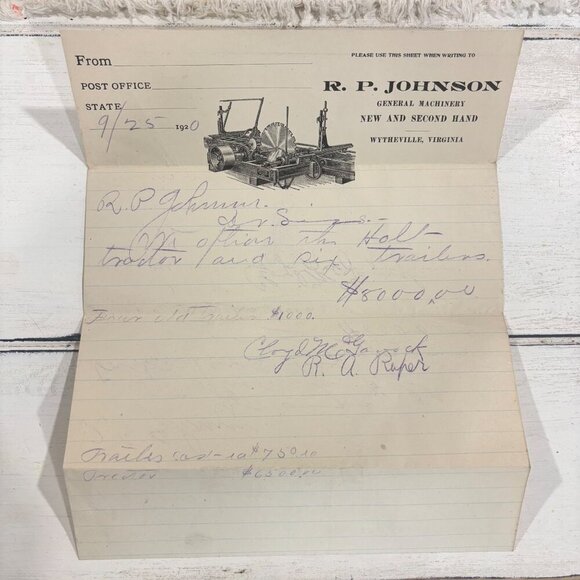 From
PLEASE USE THIS SHEET WHEN WRITING TO
POST OFFICE
R. P. JOHNSON
STATE
GENERAL MACHINERY
NEW AND SECOND HAND
9/25 1920
WYTHEVILLE, VIRGINIA
R. P. Johnson.
We the Holt
tractor and six trailers.
$8000.00
old $1000.
Cloyd McGavock
R. A. Roper
Trailer $750.00
Tractor $6500.00